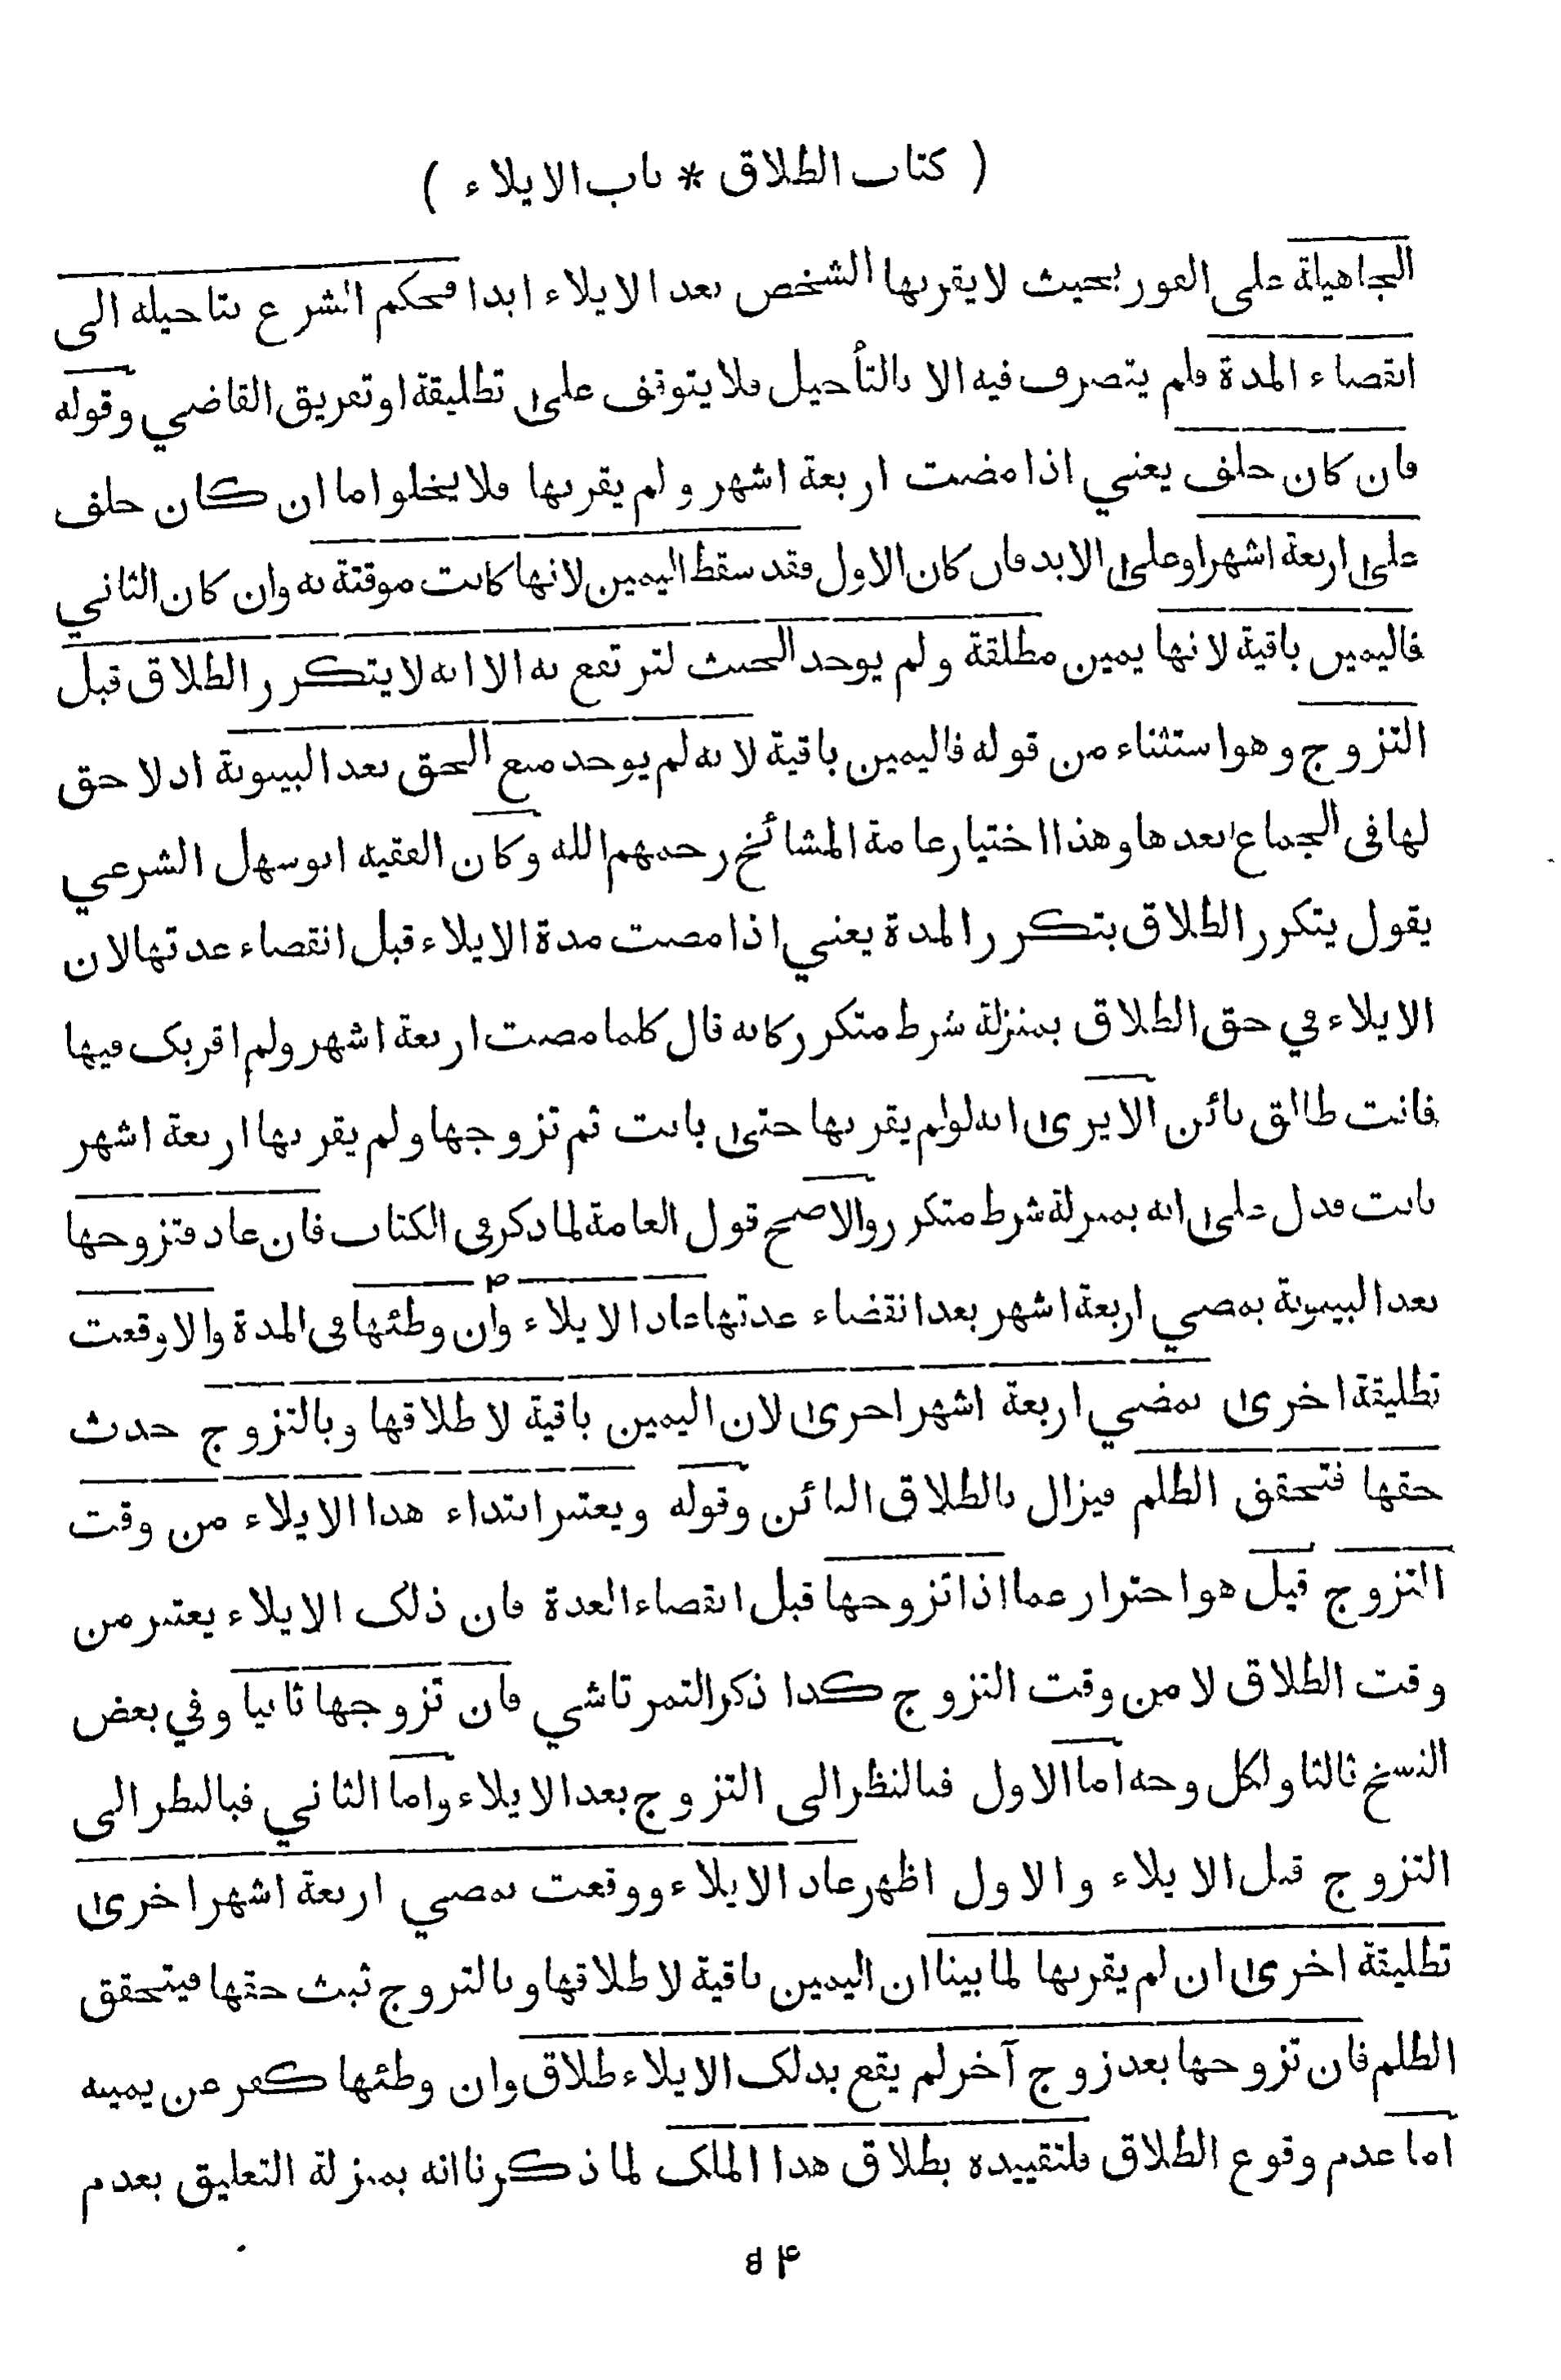 ( كتاب الطلاق * باب الايلاء )
الجاهيلة على الفور بحيث لا يقربها الشخص بعد الايلاء ابدا فحكم الشرع بتاجيله الى
انقضاء المدة فلم يتصرف فيه الا بالتأجيل فلا يتوقف على تطليقة او تفريق القاضي وقوله
فان كان حلف يعني اذا مضت اربعة اشهر ولم يقربها فلا يخلوا اما ان كان حلف
على اربعة اشهر او على الابد فان كان الاول فقد سقط اليمين لانها كانت موقتة به وان كان الثاني
فاليمين باقية لانها يمين مطلقة ولم يوجد الحنث لترتفع به الا انه لا يتكرر الطلاق قبل
التزوج وهو استثناء من قوله فاليمين باقية لانه لم يوجد منع الحق بعد البينونة اذ لا حق
لها في الجماع بعدها وهذا اختيار عامة المشائخ رحمهم الله وكان الفقيه ابو سهل الشرعي
يقول يتكرر الطلاق بتكرر المدة يعني اذا مضت مدة الايلاء قبل انقضاء عدتها لان
الايلاء في حق الطلاق بمنزلة شرط متكرر كانه قال كلما مضت اربعة اشهر ولم اقربک فيها
فانت طالق بائن الا يرى انه لو لم يقربها حتى بانت ثم تزوجها ولم يقربها اربعة اشهر
بانت فدل على انه بمنزلة شرط متكرر والاصح قول العامة لما ذكر في الكتاب فان عاد فتزوجها
بعد البينونة بمضي اربعة اشهر بعد انقضاء عدتها عاد الايلاء وان وطئها في المدة والا وقعت
تطليقة اخرى بمضي اربعة اشهر اخرى لان اليمين باقية لاطلاقها وبالتزوج حدث
حقها فتحقق الظلم فيزال بالطلاق البائن وقوله ويعتبر ابتداء هذا الايلاء من وقت
التزوج قيل هو احتراز عما اذا تزوجها قبل انقضاء العدة فان ذلک الايلاء يعتبر من
وقت الطلاق لا من وقت التزوج كذا ذكر التمرتاشي فان تزوجها ثانيا وفي بعض
النسخ ثالثا ولكل وجه اما الاول فبالنظر الى التزوج بعد الايلاء واما الثاني فبالنظر الى
التزوج قبل الايلاء والاول اظهر عاد الايلاء ووقعت بمضي اربعة اشهر اخرى
تطليقة اخرى ان لم يقربها لما بينا ان اليمين باقية لاطلاقها وبالتزوج ثبث حقها فيتحقق
الظلم فان تزوجها بعد زوج آخر لم يقع بذلک الايلاء طلاق وان وطئها كفر عن يمينه
اما عدم وقوع الطلاق فلتقييده بطلاق هذا الملک لما ذكرنا انه بمنزلة التعليق بعدم